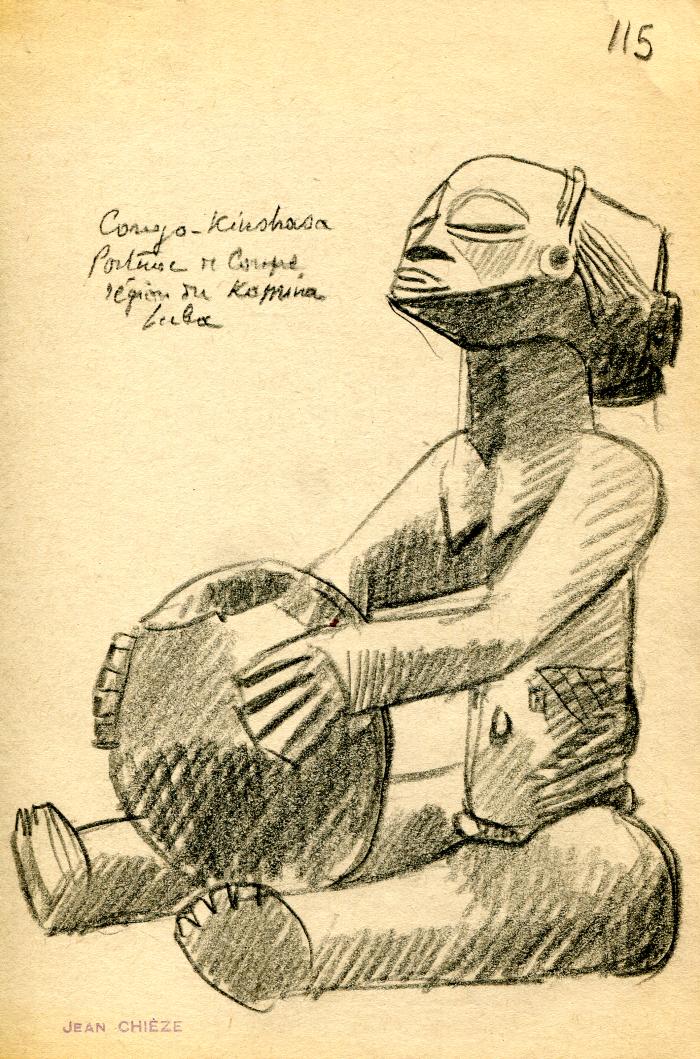 115
Congo-Kinshasa
Porteuse de Coupe
région du Kamina
Luba
JEAN CHIÈZE